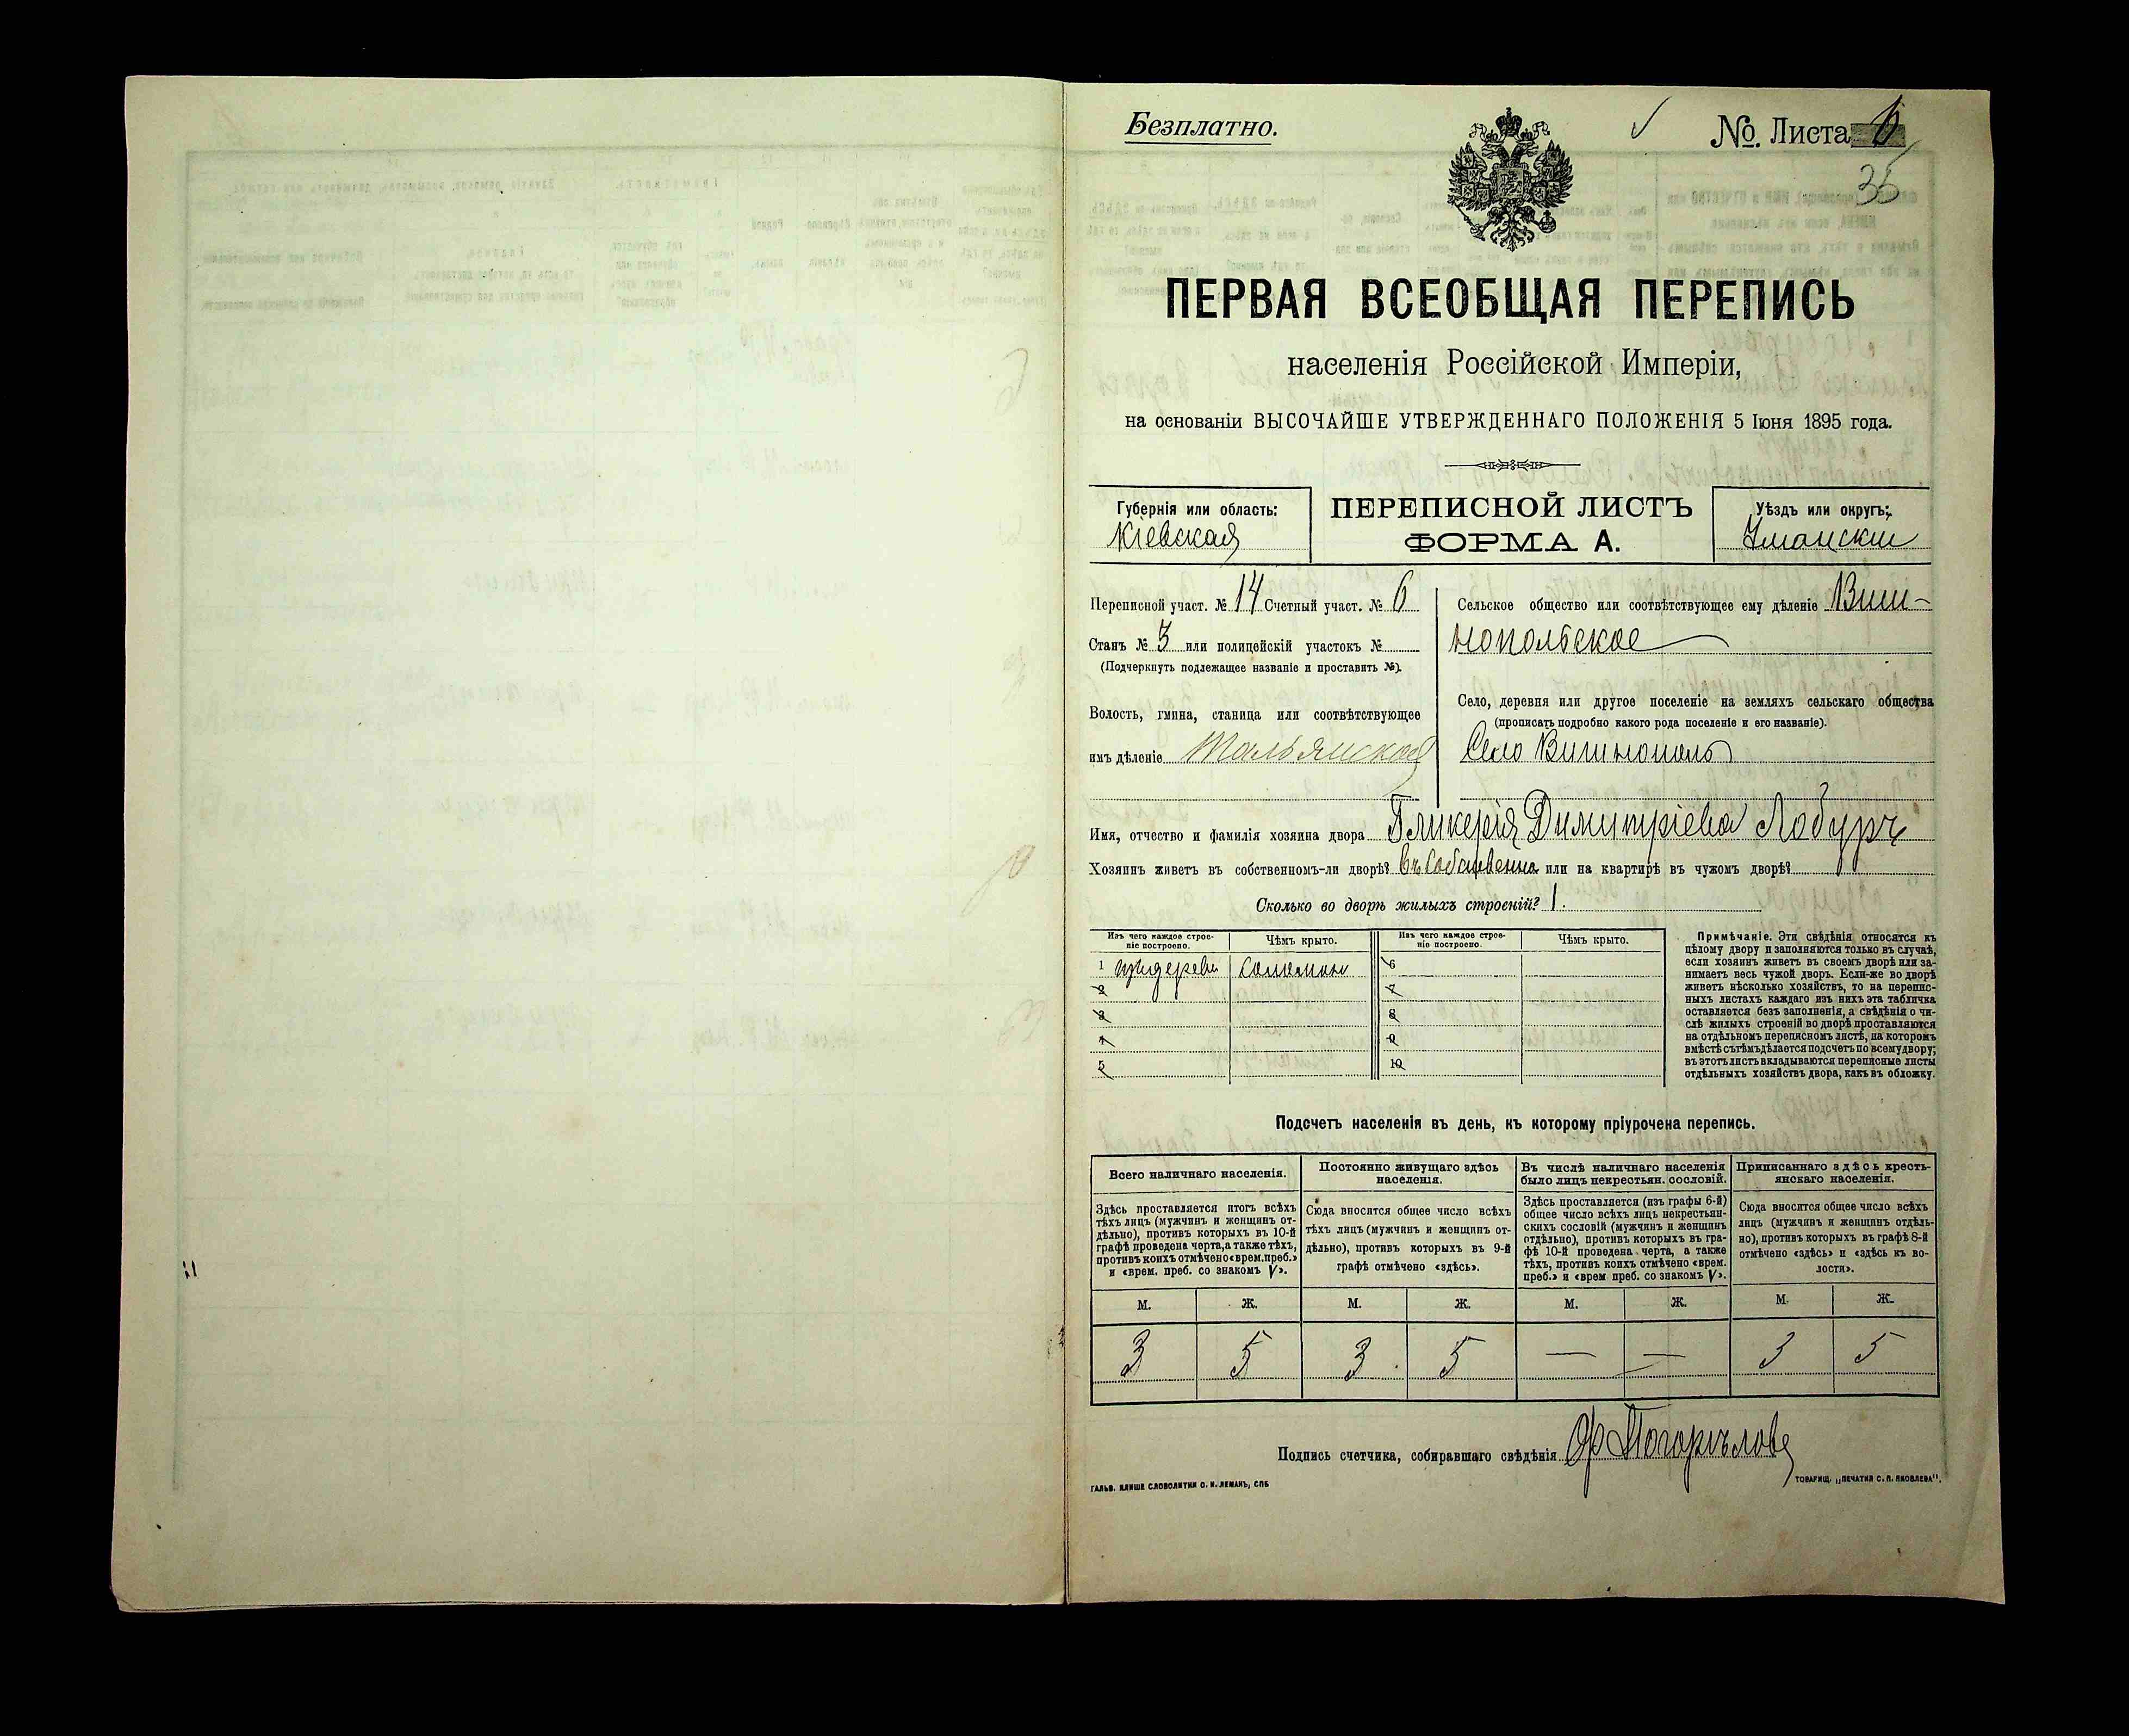 Безплатно.
№ Листа 6
35
ПЕРВАЯ ВСЕОБЩАЯ ПЕРЕПИСЬ
населенія Россійской Имперіи,
на основаніи ВЫСОЧАЙШЕ УТВЕРЖДЕННАГО ПОЛОЖЕНІЯ 5 Іюня 1895 года.
Губернія или область:
Кіевская
ПЕРЕПИСНОЙ ЛИСТЪ
ФОРМА А.
Уѣздъ или округъ:
Уманскій
Переписной участ. № 14 Счетный участ. № 6
Станъ № 3 или полицейскій участокъ №
(Подчеркнуть подлежащее названіе и проставить №).
Волость, гмина, станица или соотвѣтствующее
имъ дѣленіе Тальянская
Сельское общество или соотвѣтствующее ему дѣленіе Виш-
нопольское
Село, деревня или другое поселеніе на земляхъ сельскаго общества
(прописать подробно какого рода поселеніе и его названіе).
Село Вишнополь
Имя, отчество и фамилія хозяина двора Гликерія Димитріева Лобуръ
Хозяинъ живетъ въ собственномъ-ли дворѣ? въ собственно или на квартирѣ въ чужомъ дворѣ?
Сколько во дворѣ жилыхъ строеній? 1.
Изъ чего каждое строе-
ніе построено.
Чѣмъ крыто.
Изъ чего каждое строе-
ніе построено.
Чѣмъ крыто.
1 изъ дерева соломою 6
2 7
3 8
4 9
5 10
Примѣчаніе. Эти свѣдѣнія относятся къ
цѣлому двору и заполняются только въ случаѣ,
если хозяинъ живетъ въ своемъ дворѣ или за-
нимаетъ весь чужой дворъ. Если-же во дворѣ
живетъ нѣсколько хозяйствъ, то на перепис-
ныхъ листахъ каждаго изъ нихъ эта табличка
оставляется безъ заполненія, а свѣдѣнія о чи-
слѣ жилыхъ строеній во дворѣ проставляются
на отдѣльномъ переписномъ листѣ, на которомъ
вмѣстѣ съ тѣмъ дѣлается подсчетъ по всему двору;
въ этотъ листъ вкладываются переписные листы
отдѣльныхъ хозяйствъ двора, какъ въ обложку.
Подсчетъ населенія въ день, къ которому пріурочена перепись.
Всего наличнаго населенія.
Здѣсь проставляется итогъ всѣхъ
тѣхъ лицъ (мужчинъ и женщинъ от-
дѣльно), противъ которыхъ въ 10-й
графѣ проведена черта, а также тѣхъ,
противъ коихъ отмѣчено «врем. преб.»
и «врем. преб. со знакомъ V».
Постоянно живущаго здѣсь
населенія.
Сюда вносится общее число всѣхъ
тѣхъ лицъ (мужчинъ и женщинъ от-
дѣльно), противъ которыхъ въ 9-й
графѣ отмѣчено «здѣсь».
Въ числѣ наличнаго населенія
было лицъ некрестьян. сословій.
Здѣсь проставляется (изъ графы 6-й)
общее число всѣхъ лицъ некрестьян-
скихъ сословій (мужчинъ и женщинъ
отдѣльно), противъ которыхъ въ гра-
фѣ 10-й проведена черта, а также
тѣхъ, противъ коихъ отмѣчено «врем.
преб.» и «врем преб. со знакомъ V».
Приписаннаго здѣсь кресть-
янскаго населенія.
Сюда вносится общее число всѣхъ
лицъ (мужчинъ и женщинъ отдѣль-
но), противъ которыхъ въ графѣ 8-й
отмѣчено «здѣсь» и «здѣсь къ во-
лости».
М. Ж. М. Ж. М. Ж. М. Ж.
3 5 3 5 — — 3 5
Подпись счетчика, собиравшаго свѣдѣнія
ГАЛЬВ. КЛИШЕ СЛОВОЛИТНИ О. И. ЛЕМАНЪ, СПБ
ТОВАРИЩ. „ПЕЧАТНЯ С. П. ЯКОВЛЕВА".